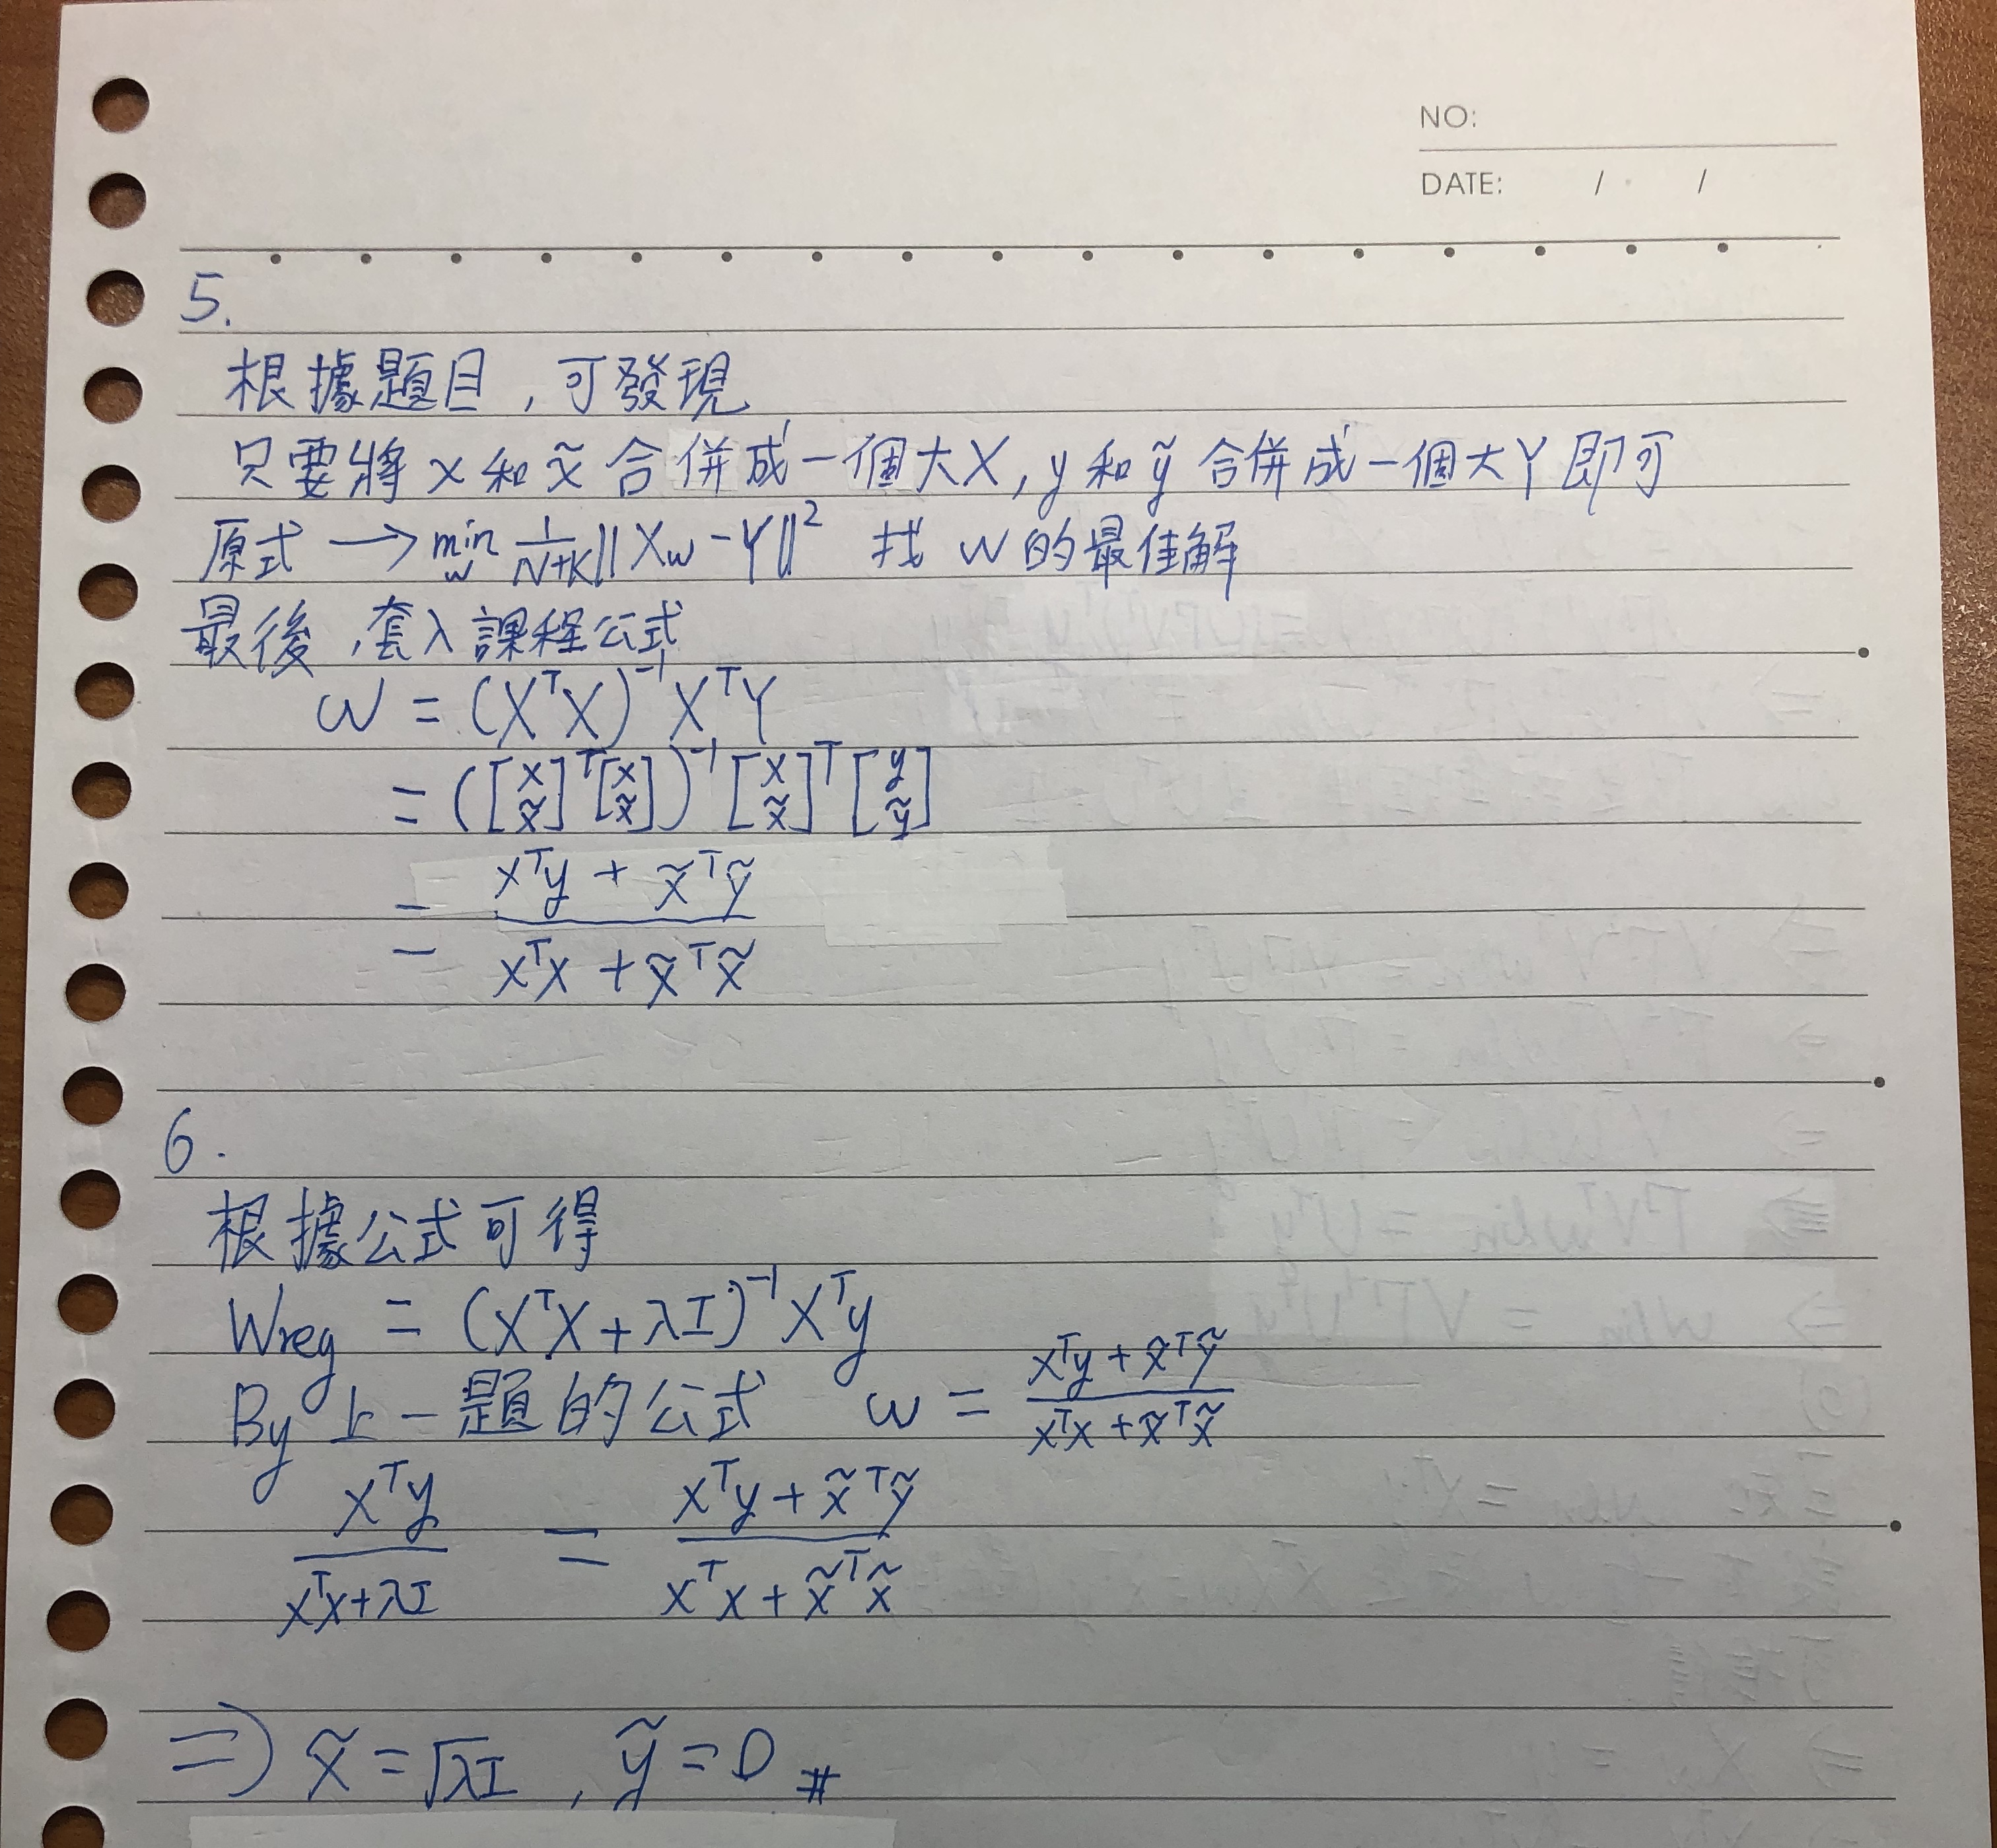 NO:
DATE: / /
5.
根據題目,可發現
只要將 x 和 x̃ 合併成一個大X, y 和 ỹ 合併成一個大Y 即可
原式 → min_w 1/(N+K) ||Xw - Y||² 找 w 的最佳解
最後,套入課程公式
w = (XᵀX)⁻¹XᵀY
= ([x x̃]ᵀ[x x̃])⁻¹ [x x̃]ᵀ [y ỹ]
= (xᵀy + x̃ᵀỹ) / (xᵀx + x̃ᵀx̃)
6.
根據公式可得
Wreg = (XᵀX + λI)⁻¹Xᵀy
By 上一題的公式 w = (xᵀy + x̃ᵀỹ) / (xᵀx + x̃ᵀx̃)
xᵀy / (xᵀx + λI) = (xᵀy + x̃ᵀỹ) / (xᵀx + x̃ᵀx̃)
⇒ x̃ = √λI , ỹ = 0 #